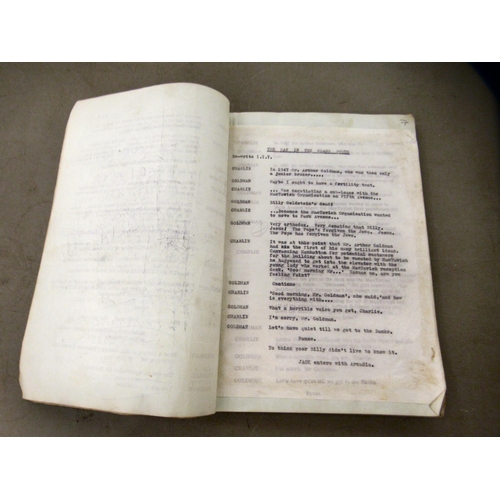 THE MAN IN THE GLASS BOOTH
Rewrite 1.1.7.
CHARLIE In 1147 Mr. Arthur Goldman, who was then only
a junior broker.....
GOLDMAN Maybe I ought to have a fertility test.
CHARLIE ... Was negotiating a sub-lease with the
Organisation on Fifth Avenue...
GOLDMAN Billy Goldstein's dead!
CHARLIE ...Because the Organisation wanted
to move to Park Avenue...
GOLDMAN Very orthodox. Very Zionist that Billy.
Jeezus! The Pope's forgiven the Jews. Jesus.
The Pope has forgiven the Jews.
CHARLIE It was at this point that Mr. Arthur Goldman
had the first of his many brilliant ideas.
Canvassing Manhattan for potential
for the building about to be vacated by
he happened to get into the elevator with the
young lady who worked at the reception
desk. 'Good Morning Mr...' Excuse me, are you
feeling faint?
GOLDMAN Continue
CHARLIE 'Good morning, Mr. Goldman', she said, 'and how
is everything with....
GOLDMAN What a horrible voice you got, Charlie.
CHARLIE I'm sorry, Mr. Goldman.
GOLDMAN Let's have quiet till we get to the Banks.
Pause.
To think poor Billy didn't live to know it.
JACK enters with Arcadia.